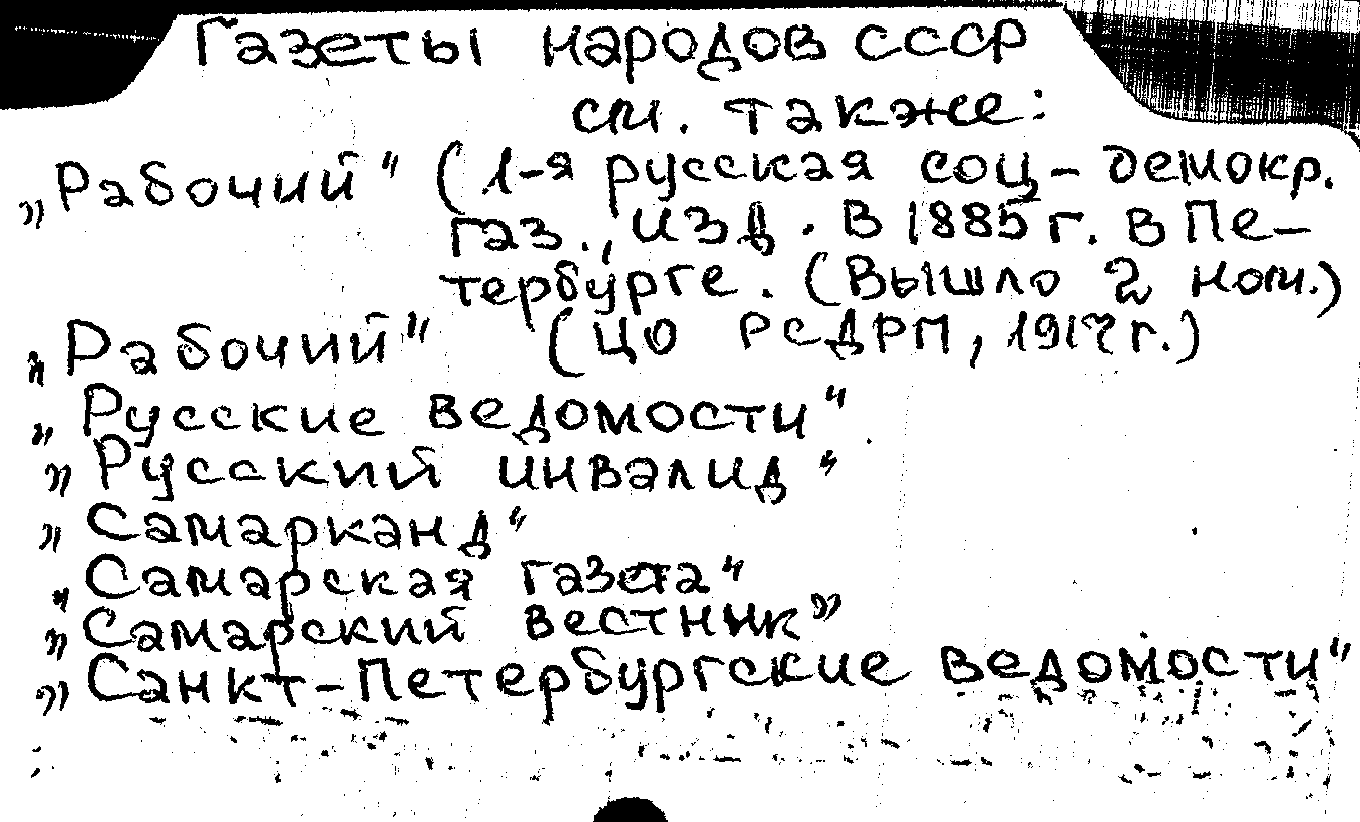 Газеты народов СССР
см. также:
„Рабочий“ (1-я русская соц-демокр.
газ., изд. в 1885 г. в Пе-
тербурге. (Вышло 2 ном.)
„Рабочий“ (ЦО РСДРП, 1917 г.)
„Русские ведомости“
„Русский инвалид“
„Самарканд“
„Самарская газета“
„Самарский вестник”
„Санкт-Петербургские ведомости“